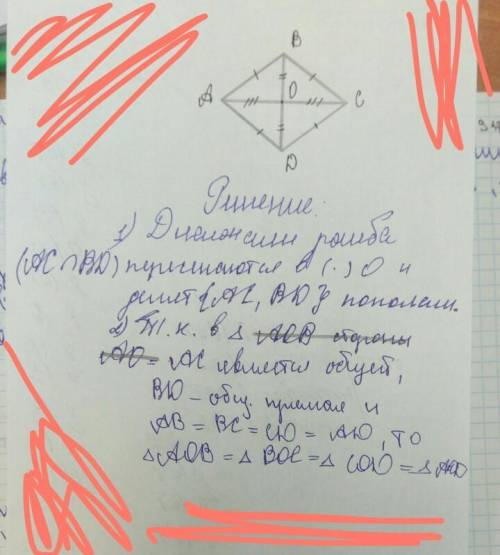 B
A O C
D
Решение:
1) Диагонали ромба
(AC ∩ BD) пересекаются в (·) O и
делят {AC, BD} пополам.
2) Т.к. в △ AOB стороны
AO = AC является общей,
BD - общ. прямая и
AB = BC = CD = AD, то
△ AOB = △ BOC = △ COD = △ AOD